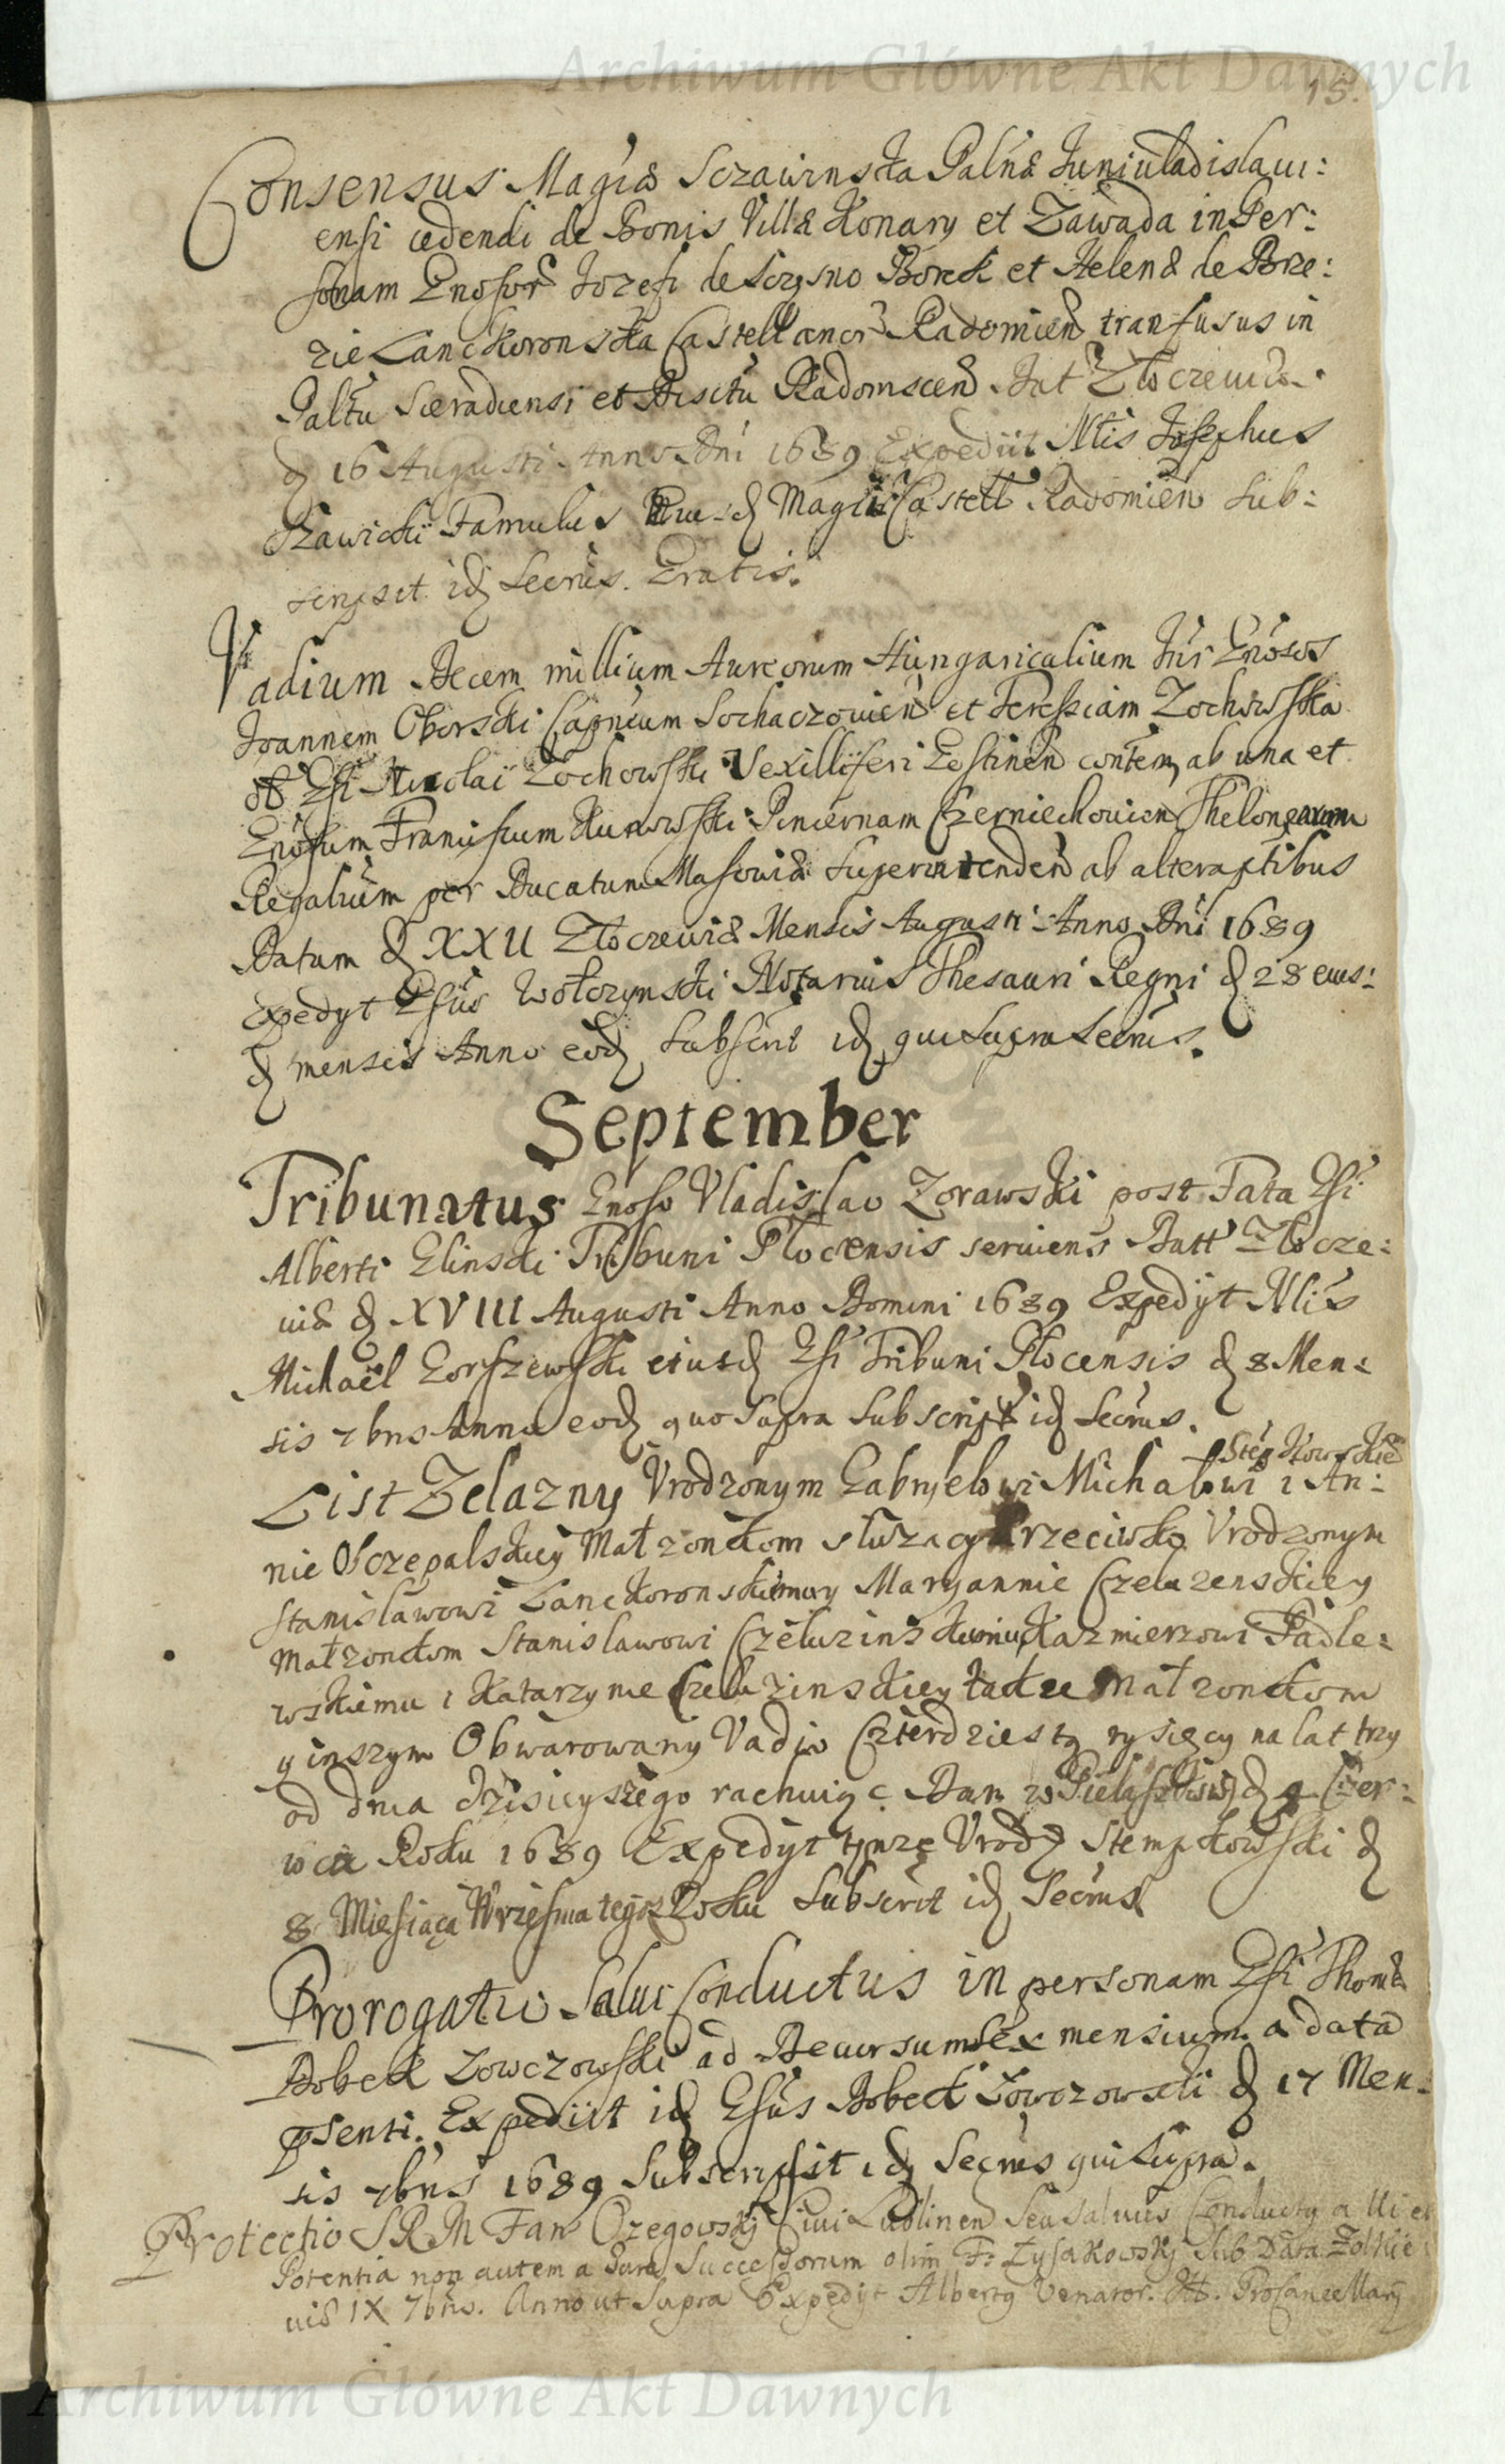 Archiwum Główne Akt Dawnych
15.
Consensus Magcæ Sczawinska Palnæ Juniuladislaui:
ensi cedendi de Bonis Villæ Konary et Zawada in Per:
sonam Gnosor Jozefi de Sczysno Borek et Helenæ de Brze:
zie Lanckoronska Castellanor Radomien transfusus in
Paltu Sieradiensi et Dsctu Radomscen Dat Złoczewiæ.
d 16 Augusti Anno Dni 1689 Expediit Nlis Josephus
Rzawicki Famulus Eiusd Magci Castell Radomien Sub:
scripsit. id Secrius. Gratis.
Vadium Decem millium Aureorum Hungaricalium Int Gnosos
Joannem Oborski Capneum Sochaczouien et Teressiam Zochowska
Gsi Nicolai Zochowski Vexilliferi Gostinen contem, ab una et
Gnosum Franciscum Kurowski Pincernam Czerniechouien Thelonearum
Regalium per Ducatum Masouiæ Superintenden ab altera ptibus
Datum d XXII Złoczeuiæ Mensis Augusti Anno Dni 1689
Expedyt Gsus Wołczynski Notarius Thesauri Regni d 28 eius:
d mensis Anno eod Subscrit id qui Supra Secrius.
September
Tribunatus Gnoso Vladislao Zorawski post Fata Gsi
Alberti Glinski Tribuni Plocensis seruiens Datt Złocze:
uiæ d XVIII Augusti Anno Domini 1689 Expedyt Nlis
Michaël Gorszewski eiusd Gsi Tribuni Plocensis d 8 Men:
sis 7bris Anno eod quo Supra Subscript id Secrius.
Stępkowskie
List Zelazny Vrodzonym Gabryelowi Michałowi i An:
nie Obrzepalskiey Małzonkom słuzacy Przeciwko Vrodzonym
Stanisławowi Lanckoronskiemu y Maryannie Czeluzenskiey
Małzonkom Stanislawowi Czeluzinskiemu Kazmierzowi Padle:
wskiemu i Katarzynie Czeluzinskiey także Małzonkom
y inszym Obwarowany Vadio Czterdziestą tysięcy na lat trzy
od dnia dzisieyszego rachuiąc. Dan w Pielaszkowi d 4 Czer:
wca Roku 1689 Expedyt tenze Vrodz Stempkowski d
8 Miesiąca Wrzesnia tegoz Roku Subscrit id Secrius
Prorogatio Salui Conductus in personam Gsi Thomæ
Dobek Lowczowski ad Decursum Sex mensium a data
psenti. Expediit id Gsus Dobek Lowczowski d 17 Men:
sis 7bris 1689 Subscripsit id Secrius qui Supra.
Protectio SRM Fam Ozegowskj Ciui Lublinen Seu Saluus Conductg a Vi et
Potentia non autem a Jure Successorum olim Fr Łysakowskj Sub Data Zolkie
uiæ IX 7bris. Anno ut Supra Expedyt Albertg Venator. Procancellarij
Archiwum Główne Akt Dawnych